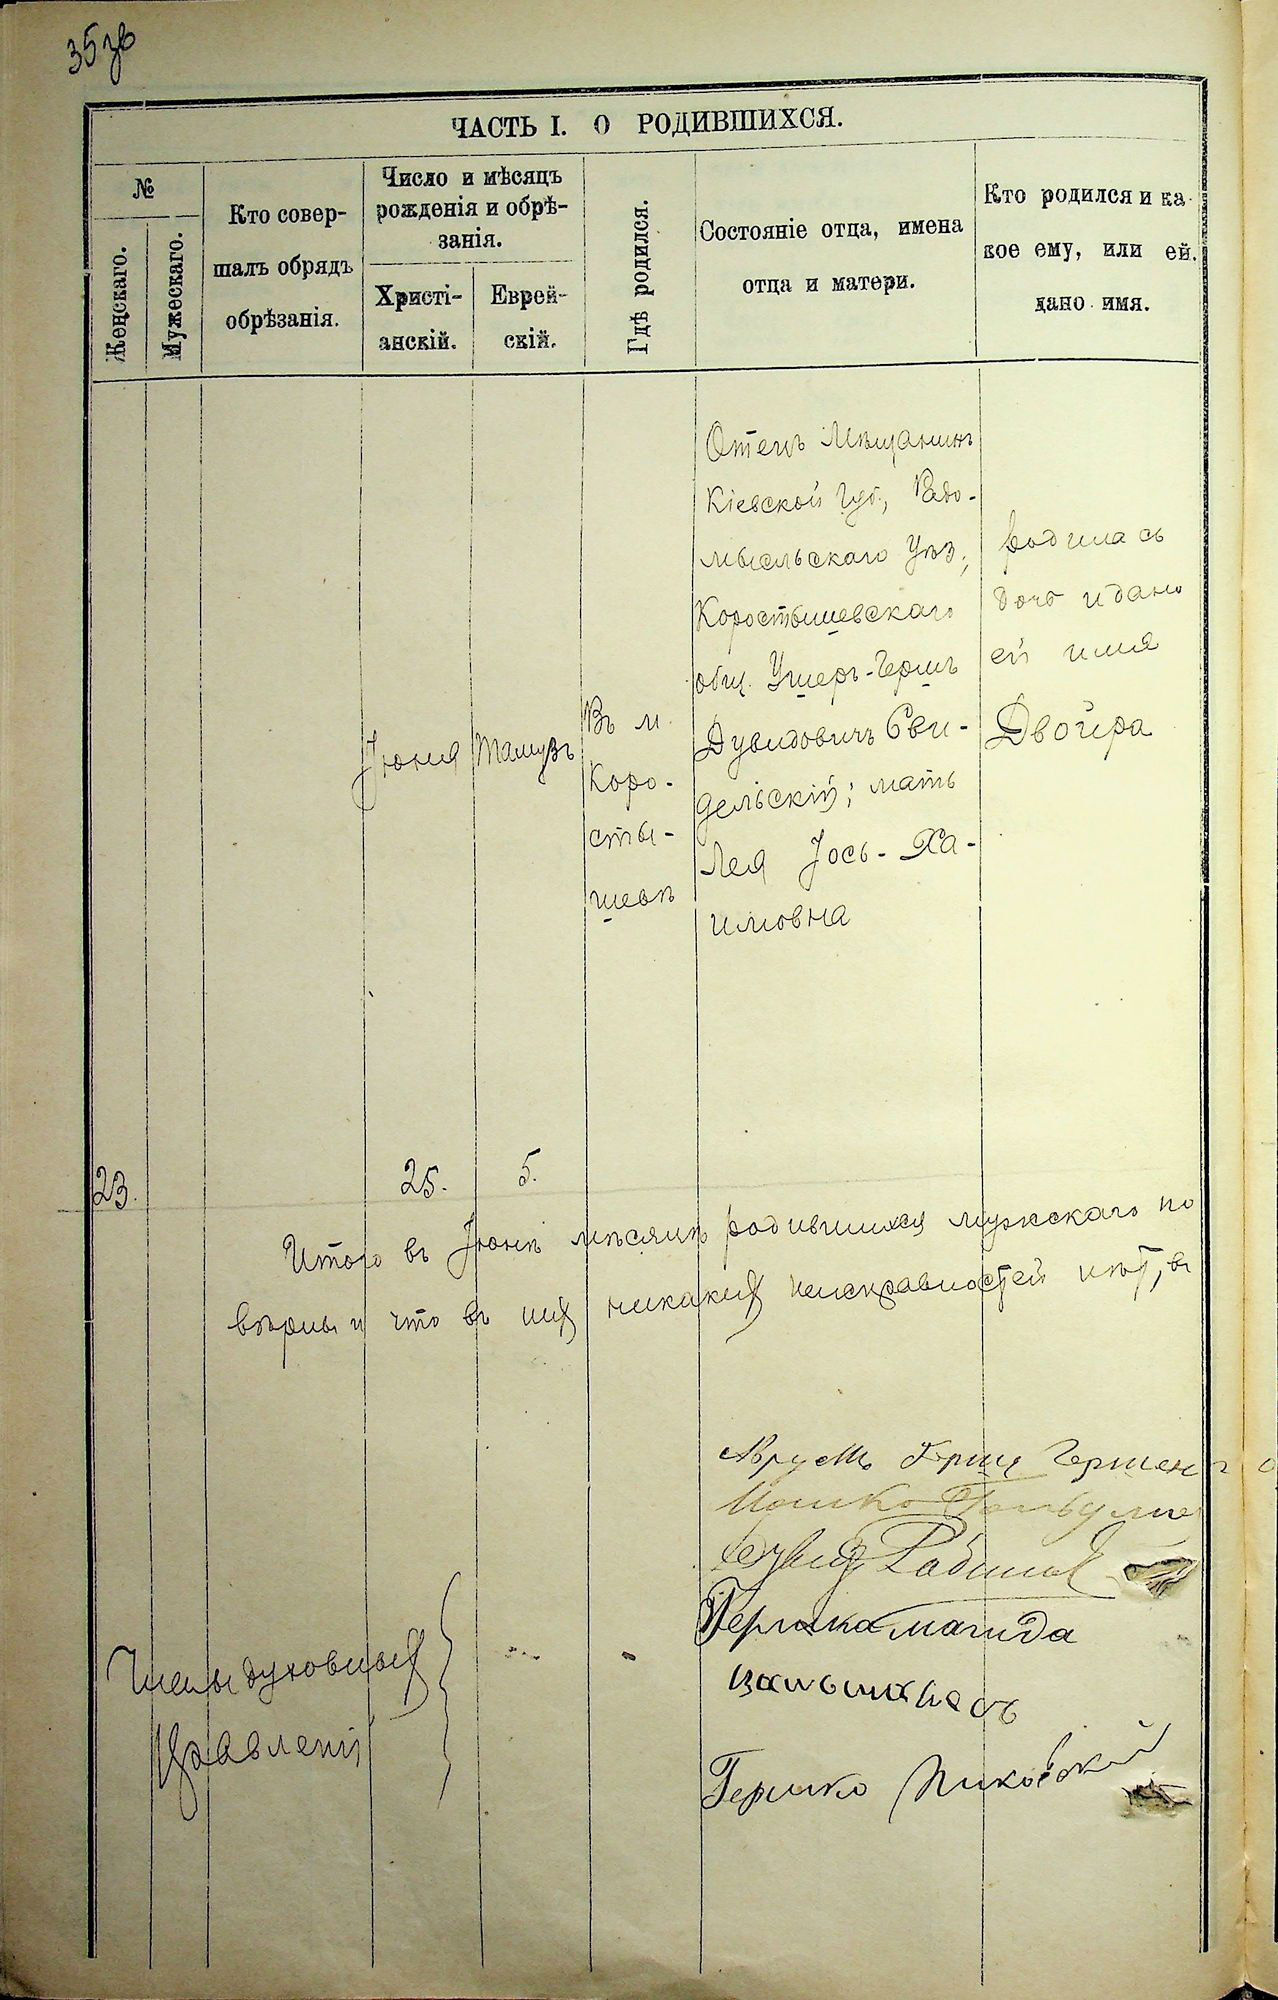 35 зв
ЧАСТЬ I. О РОДИВШИХСЯ.
№
Женскаго.
Мужескаго.
Кто совер-
шалъ обрядъ
обрѣзанія.
Число и мѣсяцъ
рожденія и обрѣ-
занія.
Христі-
анскій.
Еврей-
скій.
Гдѣ родился.
Состояніе отца, имена
отца и матери.
Кто родился и ка-
кое ему, или ей.
дано имя.
23.
Іюня
25.
Тамузъ
5.
Въ м.
Коро-
сты-
шевѣ
Отецъ Мѣщанинъ
Кіевской Губ., Радо-
мысльскаго Уѣз.,
Коростышевскаго
общ. Ушеръ-Гершъ
Дувидовичъ Сви-
дельскій; мать
Лея Іось-Ха-
имовна
родилась
дочь и дано
ей имя
Двойра
Итого въ Іюнѣ мѣсяцѣ родившихся мужескаго по
вѣрны и что въ нихъ никакихъ неисправностей нѣтъ, въ
Члены духовныхъ
Правленій
Герш Гершен
Мошко
Рабинов
Гершко Магида
Гершко